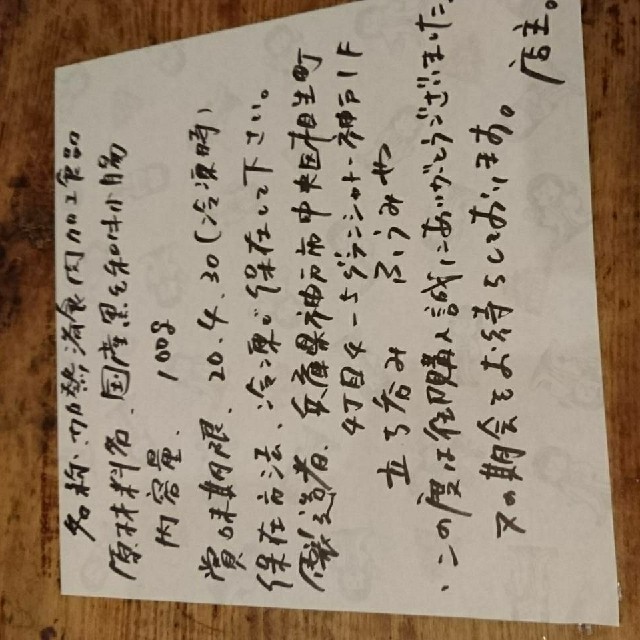 名称、加熱済食肉加工食品
原材料名、国産黒毛和牛小腸
内容量、100g
賞味期限、20.4.30(冷凍時)
保存方法、冷凍で保存して下さい。
製造者、兵庫県神戸市中央区相生町
4丁目4-5グランシャトー神戸1F
立ち呑み ふうみや
この度は御購入誠にありがとうございました。
又の期会をお待ちしております。 店主。